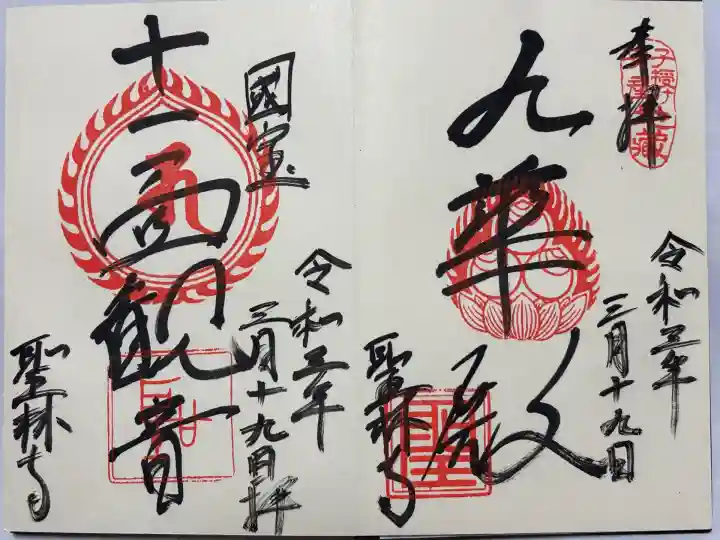 奉拝
子授け
地蔵
九華殿
令和三年
三月十九日
聖林寺
國宝
十一面観音
令和三年
三月十九日拝
聖林寺